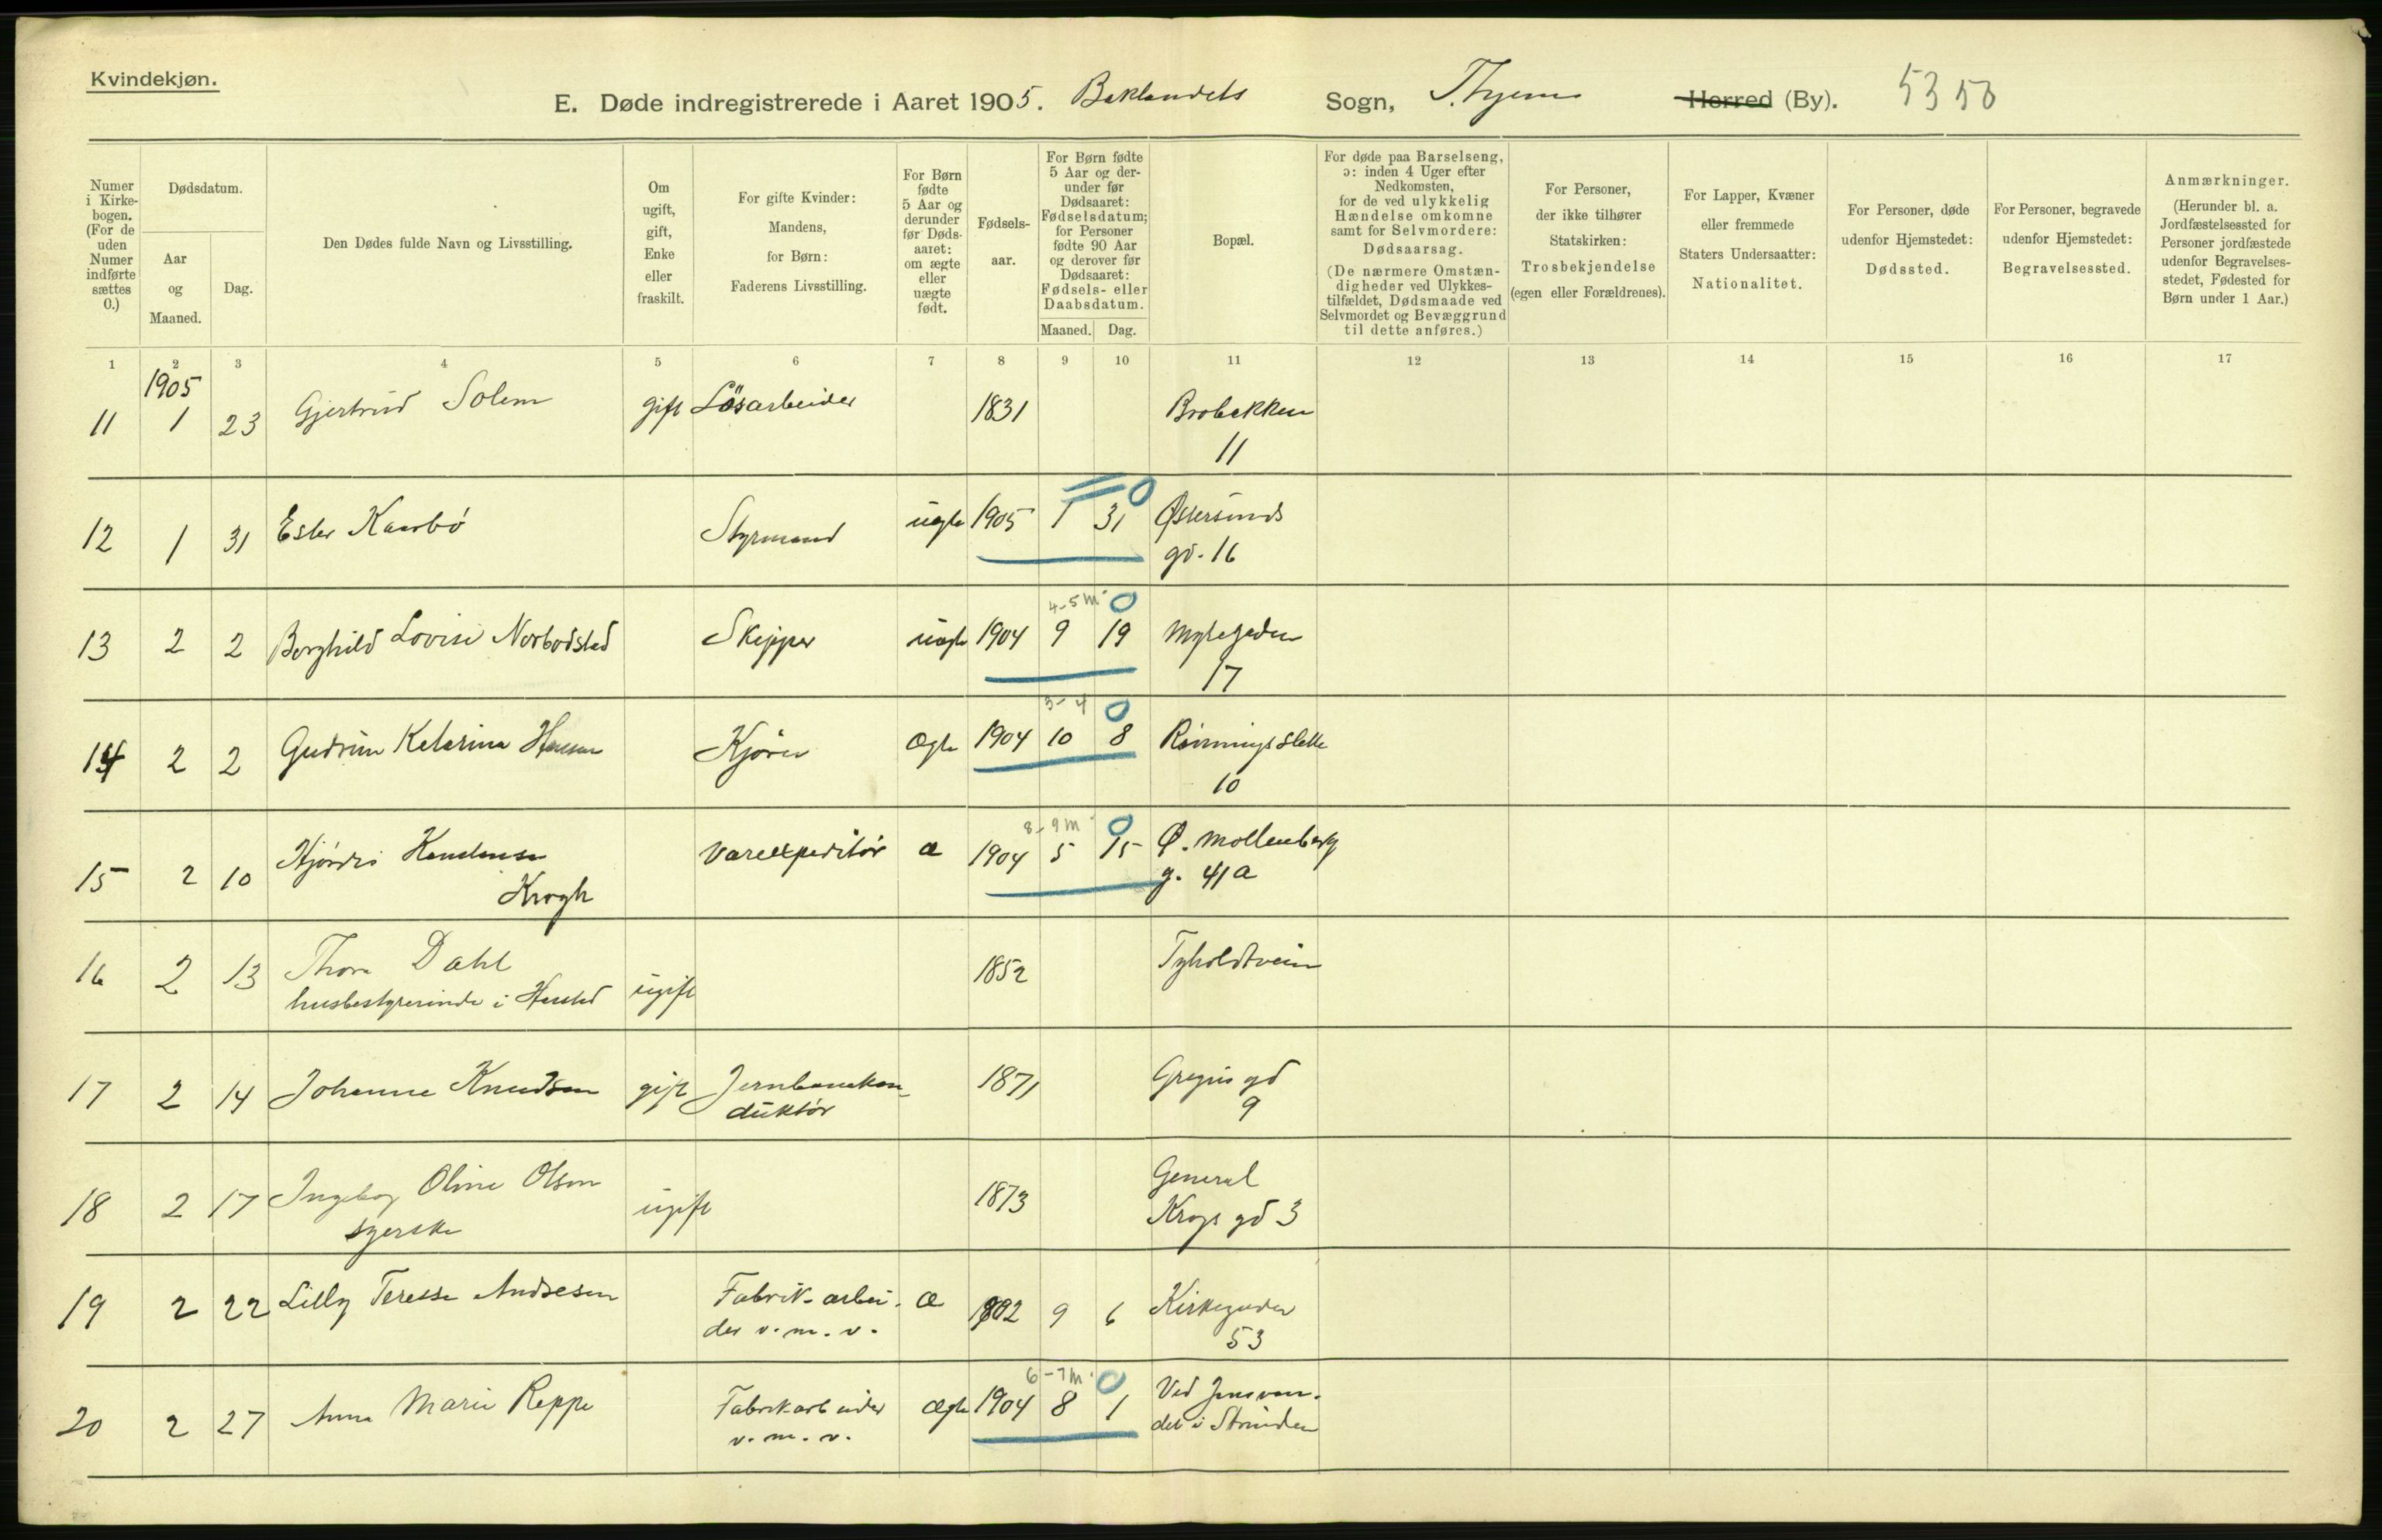 Kvindekjøn.
E. Døde indregistrerede i Aaret 1905. Baklandets Sogn, T.hjem Herred (By). 5350
Numer i Kirkebogen. (For de uden Numer indførte sættes 0.)
Dødsdatum.
Aar og Maaned.
Dag.
Den Dødes fulde Navn og Livsstilling.
Om ugift, gift, Enke eller fraskilt.
For gifte Kvinder: Mandens, for Børn: Faderens Livsstilling.
For Børn fødte 5 Aar og derunder før Dødsaaret: om ægte eller uægte født.
Fødselsaar.
For Børn fødte 5 Aar og derunder før Dødsaaret: Fødselsdatum; for Personer fødte 90 Aar og derover før Dødsaaret: Fødsels- eller Daabsdatum.
Maaned. Dag.
Bopæl.
For døde paa Barselseng, ɔ: inden 4 Uger efter Nedkomsten, for de ved ulykkelig Hændelse omkomne samt for Selvmordere: Dødsaarsag. (De nærmere Omstændigheder ved Ulykkestilfældet, Dødsmaade ved Selvmordet og Bevæggrund til dette anføres.)
For Personer, der ikke tilhører Statskirken: Trosbekjendelse (egen eller Forældrenes).
For Lapper, Kvæner eller fremmede Staters Undersaatter: Nationalitet.
For Personer, døde udenfor Hjemstedet: Dødssted.
For Personer, begravede udenfor Hjemstedet: Begravelsessted.
Anmærkninger. (Herunder bl. a. Jordfæstelsessted for Personer jordfæstede udenfor Begravelsesstedet, Fødested for Børn under 1 Aar.)
1 2 3 4 5 6 7 8 9 10 11 12 13 14 15 16 17
1905
11 1 23 Gjertrud Solem gift Lösarbeider 1831 Brobakken
11
0
12 1 31 Ester Kaarbö Styrmand uegte 1905 1 31 Østersunds
gd. 16
4-5 m 0
13 2 2 Borghild Lovise Norbodstad Skipper uægte 1904 9 19 Myhregaden
17
3-4 0
14 2 2 Gudrun Katarina Hansen Kjörer Ægte 1904 10 8 Rönningsslette
10
8-9 m 0
15 2 10 Hjördis Knudsen Vareexpeditör æ 1904 5 15 Ø. Mollenberg
Krogh g. 41a
16 2 13 Thora Dahl ugift 1852 Tyholdtveien
husbestyrerinde i
17 2 14 Johanne Knudsen gift Jernbanekon- 1871 Gregus gd
duktör 9
18 2 17 Ingeborg Oline Olsen ugift 1873 General
syerske Krogs gd 3
19 2 22 Lilly Teresse Andresen Fabrik-arbei- æ 1902 9 6 Kirkegaden
der v. m. v. 53
6-7 m 0
20 2 27 Anna Marie Reppe Fabrikarbeider Ægte 1904 8 1 Ved Jonsvan-
v. m. v. det i Strinden